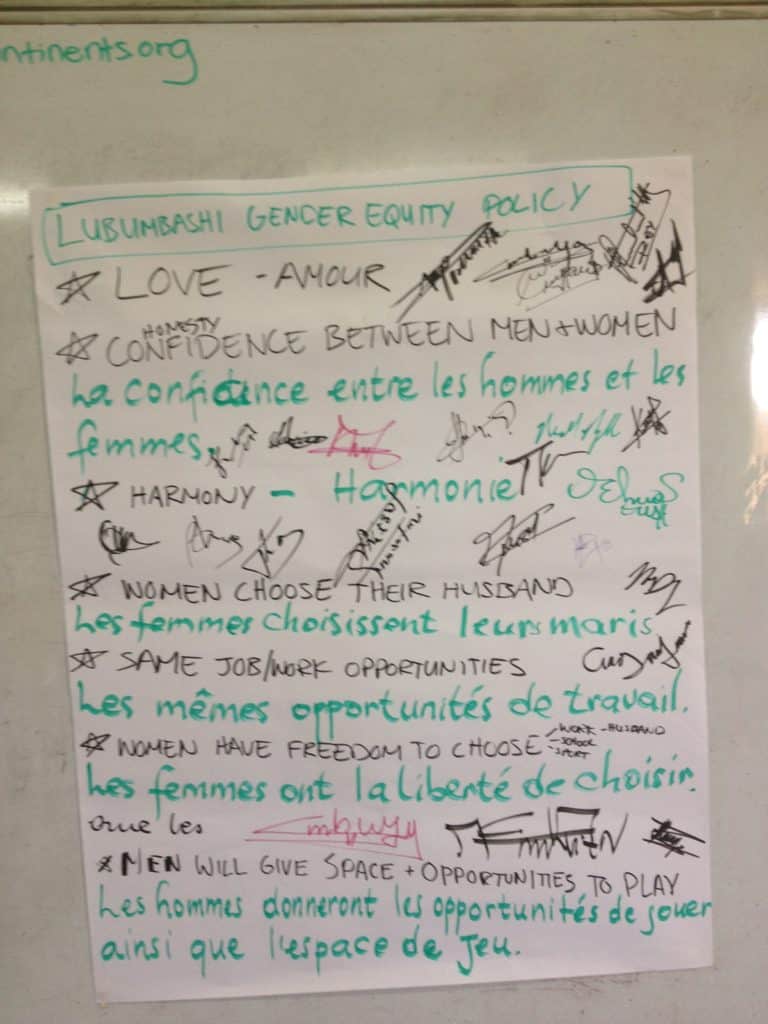 ntinents.org
LUBUMBASHI GENDER EQUITY POLICY
LOVE - AMOUR
HONESTY
CONFIDENCE BETWEEN MEN + WOMEN
La confidance entre les hommes et les
femmes.
HARMONY - Harmonie
WOMEN CHOOSE THEIR HUSBAND
Les femmes choisissent leurs maris
SAME JOB/WORK OPPORTUNITIES
Les mêmes opportunités de travail.
WOMEN HAVE FREEDOM TO CHOOSE - WORK - HUSBAND
- SCHOOL
SPORT
Les femmes ont la liberté de choisir.
que les
MEN WILL GIVE SPACE + OPPORTUNITIES TO PLAY
Les hommes donneront les opportunités de jouer
ainsi que l'espace de jeu.